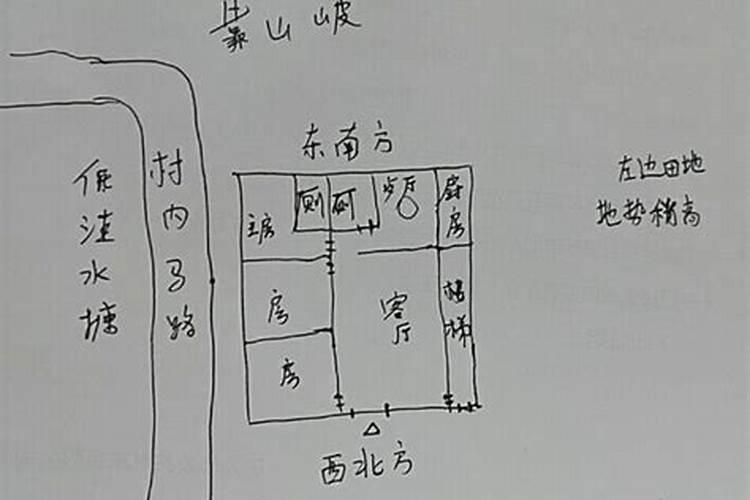 靠山坡
东南方
左边田地
地势稍高
低洼水塘
村内马路
主房
厕
厕
厨房
房
客厅
楼梯
房
西北方